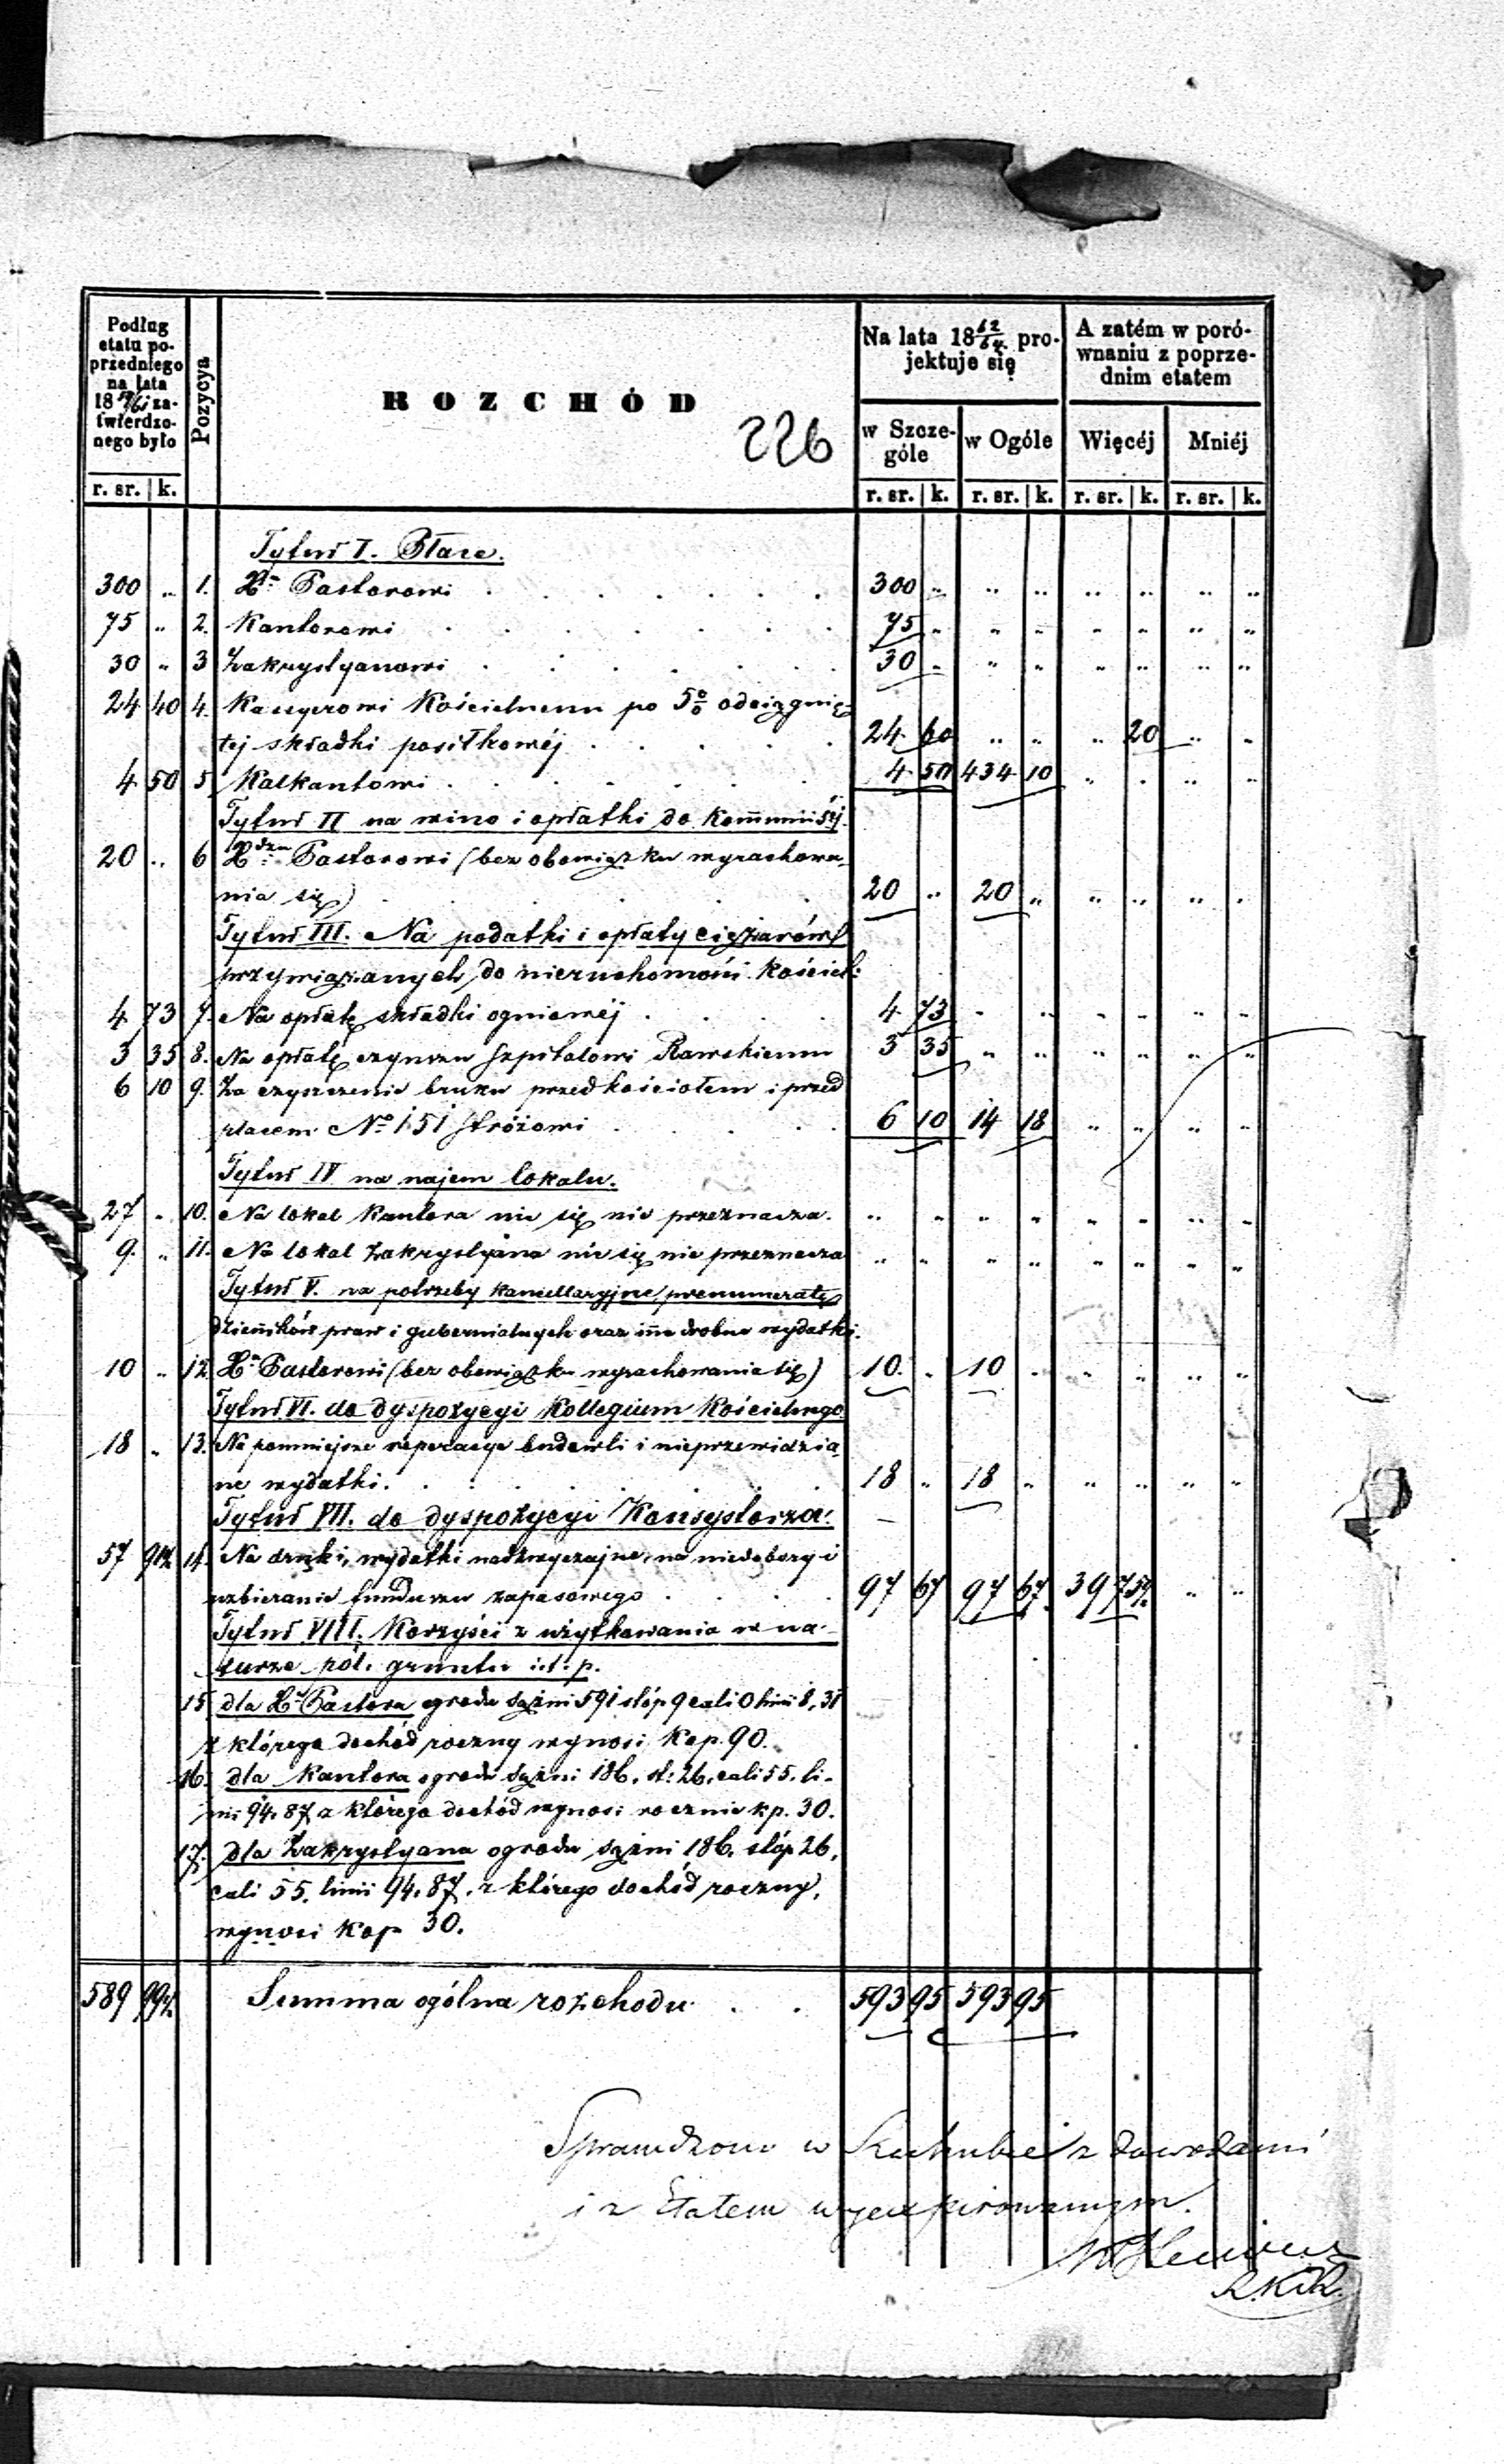 Podług
etatu po-
przedniego
na lata
18 59/61 za-
twierdzo-
nego było
r. sr. | k.
Pozycya
ROZCHÓD
226
Na lata 18 62/64 pro-
jektuje się
w Szcze-
góle
w Ogóle
A zatém w poró-
wnaniu z poprze-
dnim etatem
Więcéj
Mniéj
r. sr. | k. r. sr. | k. r. sr. | k. r. sr. | k.
Tytuł I. Płace.
300 „ 1. Xu Pastorowi . . . . . . 300 „ „ „ „ „ „ „
75 „ 2. Kantorowi . . . . . . 75 „ „ „ „ „ „ „
30 „ 3 Zakrystyanowi . . . . . . 30 „ „ „ „ „ „ „
24 40 4. Kassyerowi Kościelnemu po 5% odciągnię-
tej składki posiłkowéj . . . . . 24 60 „ „ „ 20 „ „
4 50 5 Kalkantowi . . . . . . 4 50 434 10 „ „ „ „
Tytuł II na wino i opłatki do Kommunii Stéj.
20 „ 6 Xdzu Pastorowi (bez obowiązku wyrachowa-
nia się) . . . . . 20 „ 20 „ „ „ „ „
Tytuł III. Na podatki i opłaty ciężarów
przywiązanych do nieruchomości Kościel:
4 73 7. Na opłatę składki ogniowéj . . . . 4 73 „ „ „ „ „ „
3 35 8. Na opłatę czynszu Szpitalowi Rawskiemu 3 35 „ „ „ „ „ „
6 10 9. Za czyszczenie bruku przed kościołem i przed
placem No 151 Stróżowi . . . . 6 10 14 18 „ „ „ „
Tytuł IV na najem lokalu.
27 „ 10. Na lokal Kantora nic się nie przeznacza. „ „ „ „ „ „ „ „
9. „ 11. Na lokal Zakrystyana nic się nie przeznacza „ „ „ „ „ „ „ „
Tytuł V. na potrzeby kancellaryjne, prenumeratę
dzienników praw i gubernialnych oraz inne drobne wydatki.
10 „ 12 Xu Pastorowi (bez obowiązku wyrachowania się) 10. „ 10 „ „ „ „ „
Tytuł VI. do dyspozycyi Kollegium Kościelnego
18 „ 13. Na pomniejsze reperacye budowli i nieprzewidzia-
ne wydatki. . . . . . 18 „ 18 „ „ „ „ „
Tytuł VII. do dyspozycyi Konsystorza.
57 91½ 14. Na druki, wydatki nadzwyczajne, na niedobory i
uzbieranie funduszu zapasowego . . . . 97 67 97 67 39 75½ „ „
Tytuł VIII. Korzyści z użytkowania w na-
turze pól, gruntu i t. p.
15 dla Xa Pastora ogrodu sążni 591 stóp 9 cali 0 linii 8, 31
z którego dochód roczny wynosi Kop. 90.
16. dla Kantora ogrodu sążni 186. st: 26. cali 55. li-
nii 94. 87 z którego dochód wynosi rocznie kp. 30.
17. dla Zakrystyana ogrodu sążni 186. stóp 26,
cali 55. linii 94. 87. z którego dochód roczny,
wynosi Kop 30.
589 99½ Summa ogólna rozchodu . . 593 95 593 95
Sprawdzono w Rachubie z dowodami
i z Etatem wyexpirowanym.